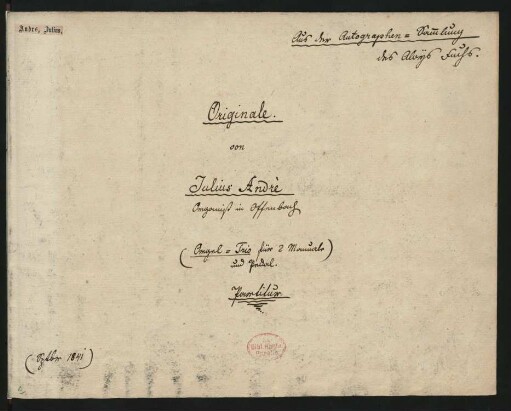 André, Julius.
Aus der Autographen = Samlung
des Aloys Fuchs.
Originale.
von
Julius André
Organist in Offenbach
(Orgel = Trio für 2 Manuale)
und Pedal.
Partitur
(Sptbr 1841)